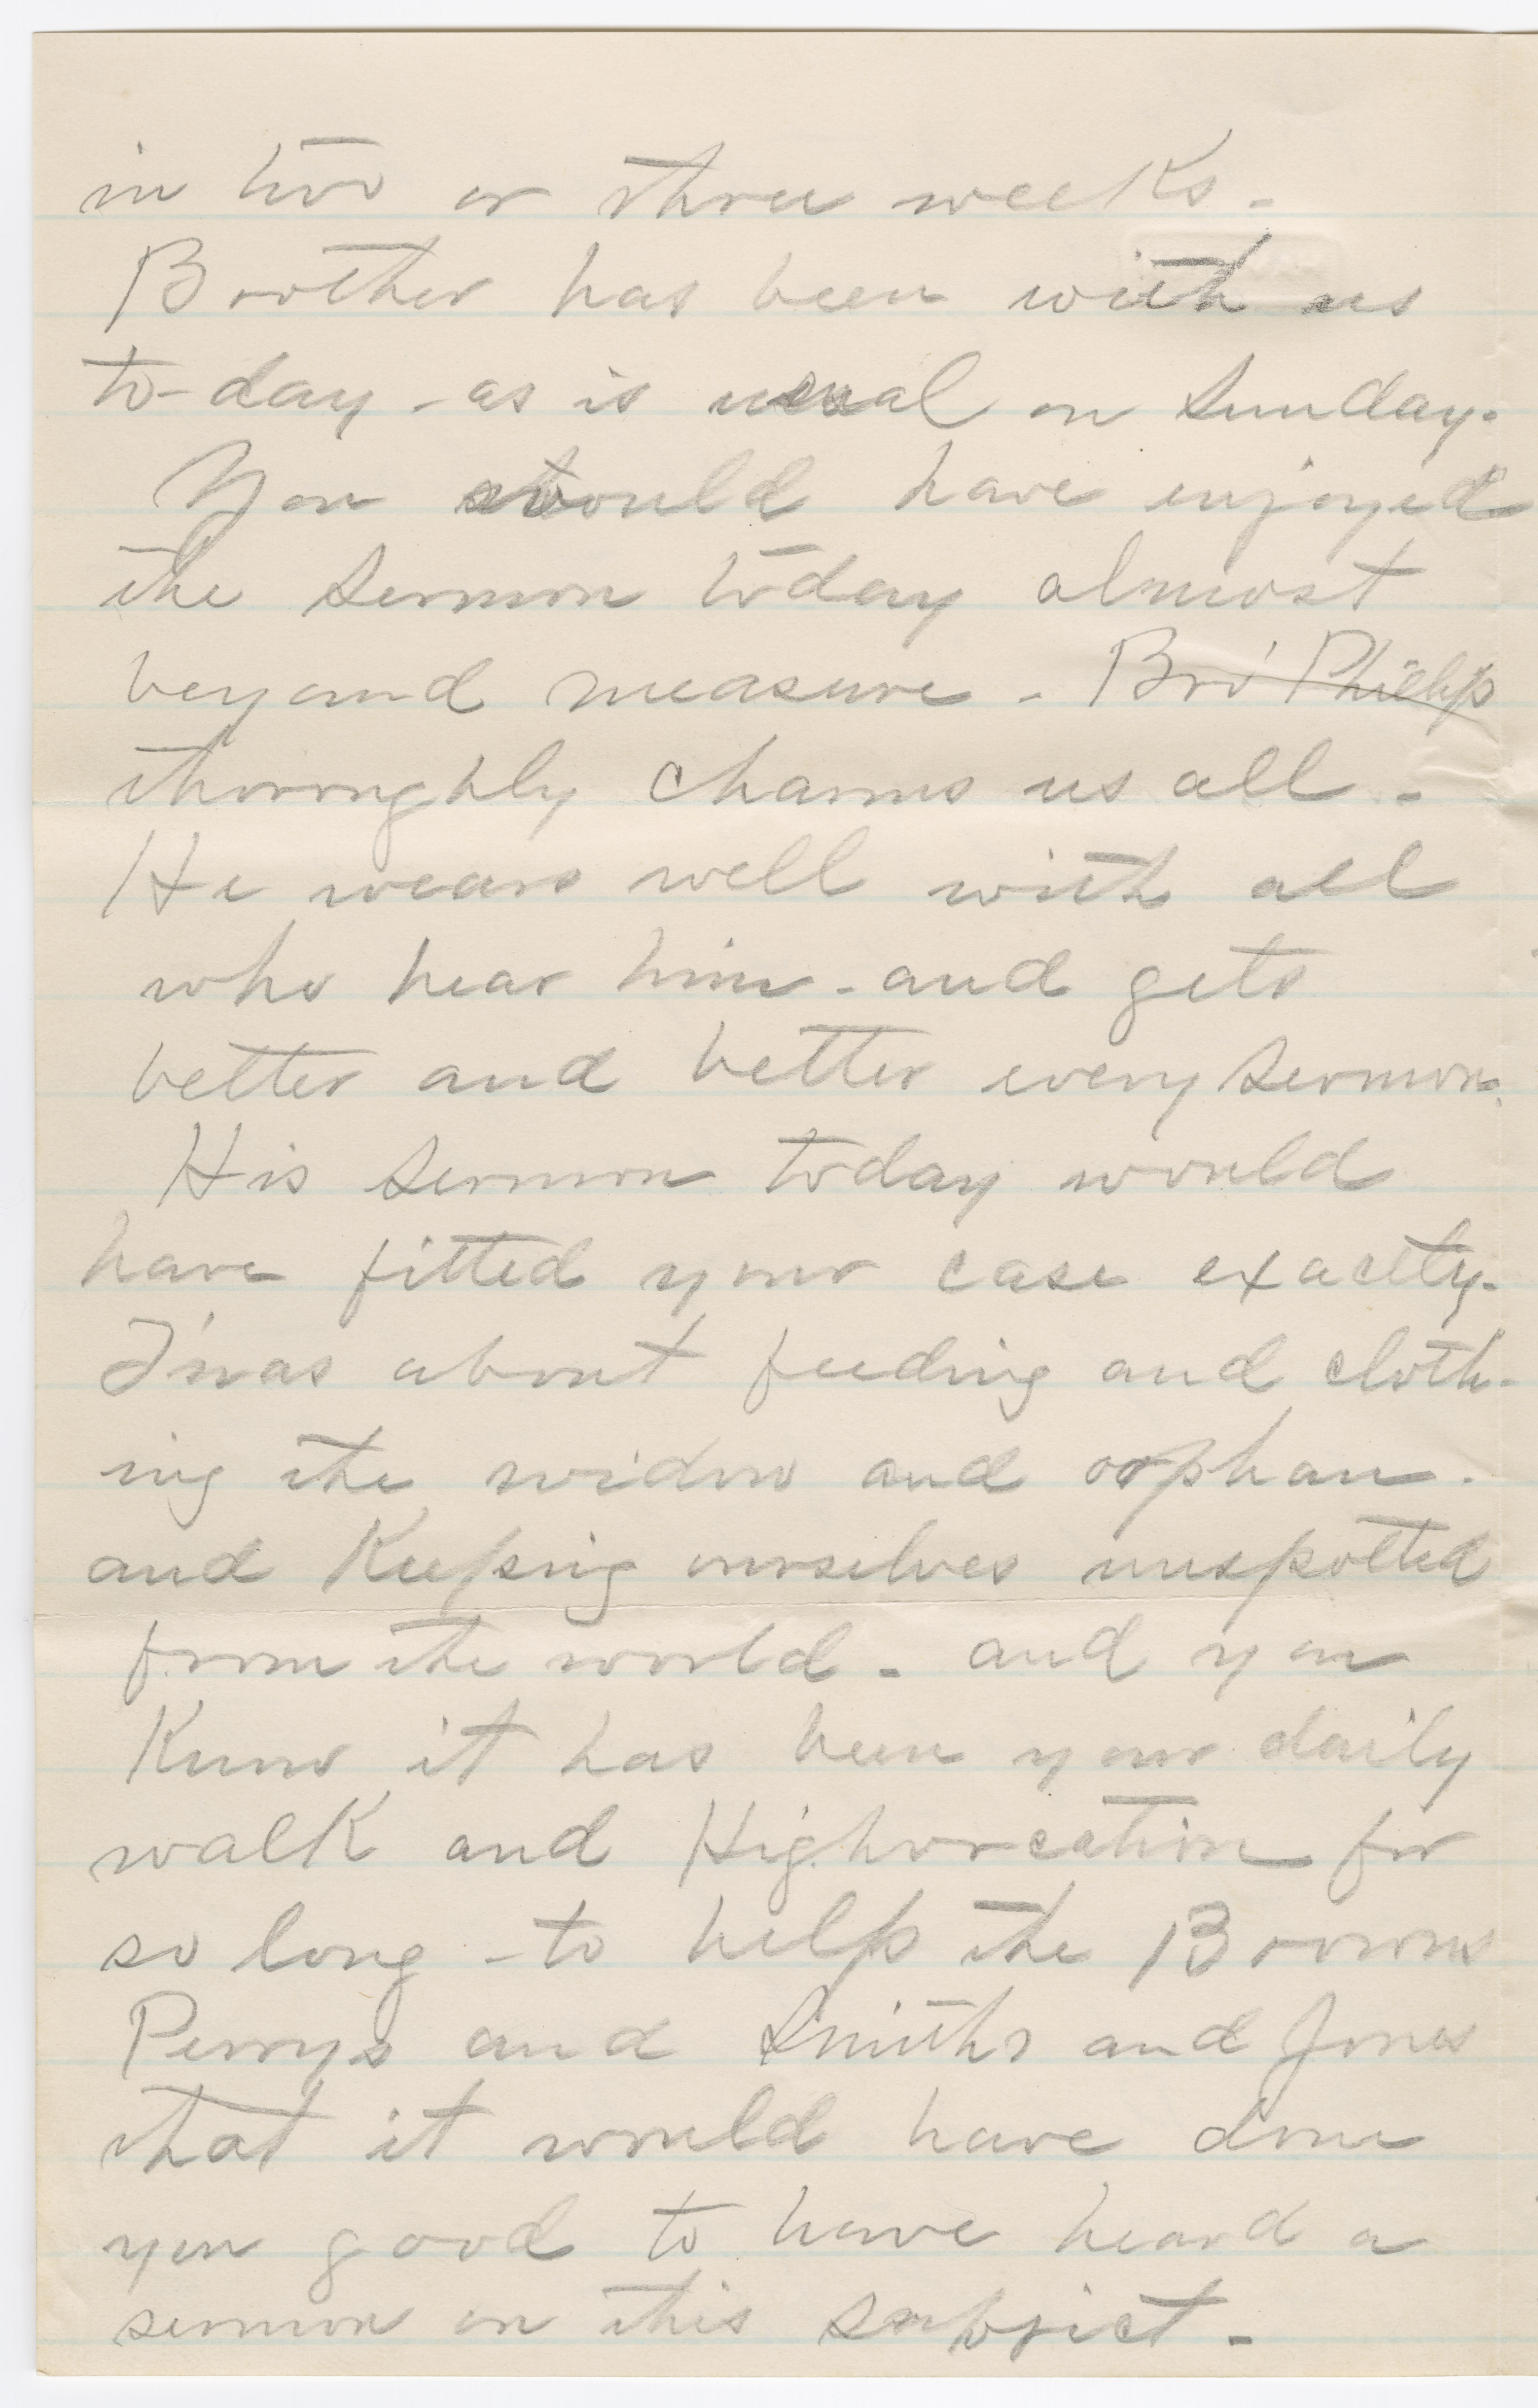 in two or three weeks -
Brother has been with us
to-day - as is usual on Sunday.
You would have enjoyed
the sermon today almost
beyond measure - Bro' Phillip
thoroughly charms us all -
He wears well with all
who hear him - and gets
better and better every sermon.
His sermon today would
have fitted your case exactly.
T'was about feeding and cloth-
ing the widow and orphan.
and Keeping ourselves unspotted
from the world - and you
Know it has been your daily
walk and High vocation for
so long - to help the Browns
Perrys and Smiths and Jones
that it would have done
you good to have heard a
sermon on this subject -